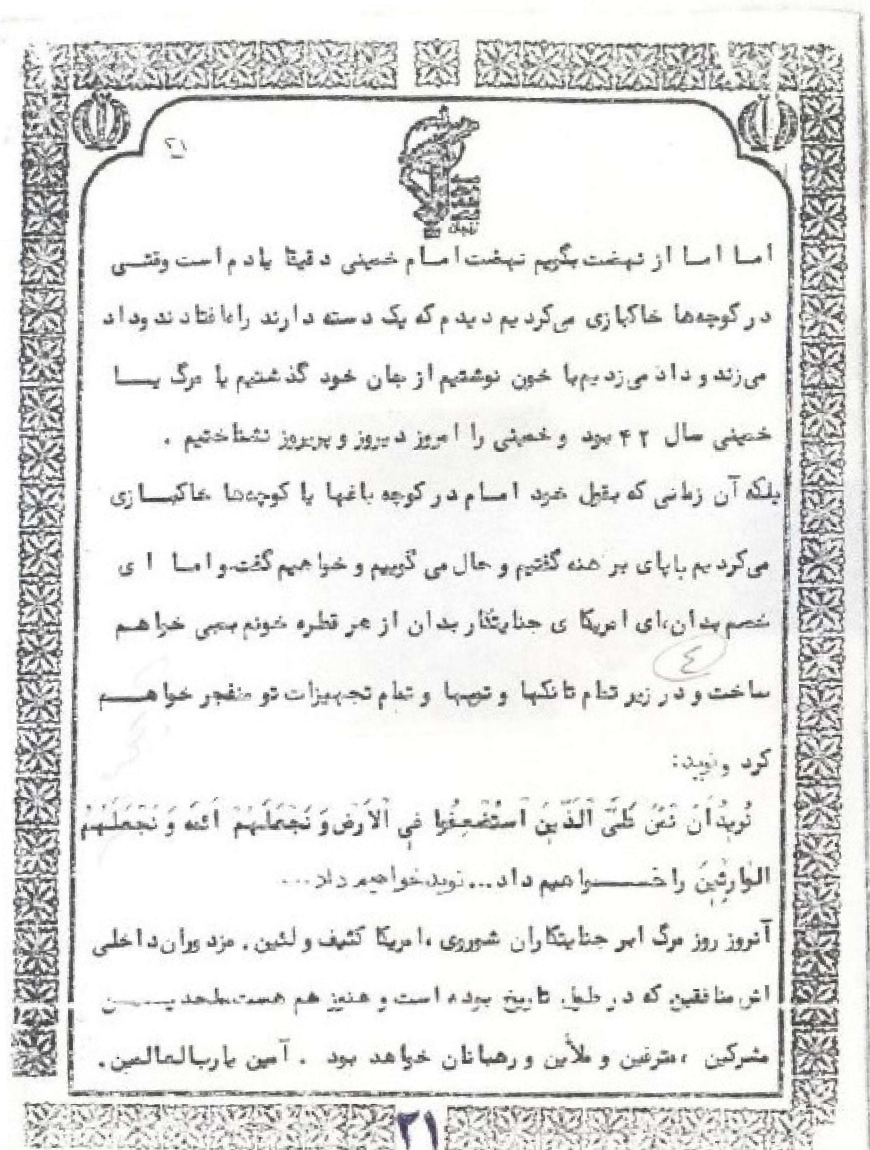 ۲۱
زنجان
اما اما از نهضت بگویم نهضت امام خمینی دقیقا یادم است وقتی
در کوچه‌ها خاکبازی می‌کردیم دیدم که یک دسته دارند راه افتادند و داد
می‌زند و داد می‌زدیم با خون نوشتیم از جان خود گذشتیم یا مرگ یا
خمینی سال ۴۲ بود و خمینی را امروز دیروز و پریروز نشناختیم .
بلکه آن زمانی که بقول خود امام در کوچه باغها یا کوچه‌ها خاکبازی
می‌کردیم با پای برهنه گفتیم و حال می گوییم و خواهیم گفت. و اما ای
خصم بدان، ای امریکا ی جنایتکار بدان از هر قطره خونم بمبی خواهم
۴
ساخت و در زیر تمام تانکها و توپها و تمام تجهیزات تو منفجر خواهم
کرد و نوید:
نُریدُ اَنْ نَمُنَّ عَلَی الَّذینَ اسْتُضْعِفُوا فِی الْاَرْضِ وَ نَجْعَلَهُمْ اَئمه وَ نَجْعَلَهُمُ
الوارِثینَ را خواهیم داد... نوید خواهیم داد...
آنروز روز مرگ ابر جنایتکاران شوروی ،امریکا کثیف و لئین . مزدوران داخلی
اش منافقین که در طول تاریخ بوده است و هنوز هم هست ملحدین
مشرکین ،مترفین و ملأین و رهبانان خواهد بود . آمین یا رب العالمین.
۲۱